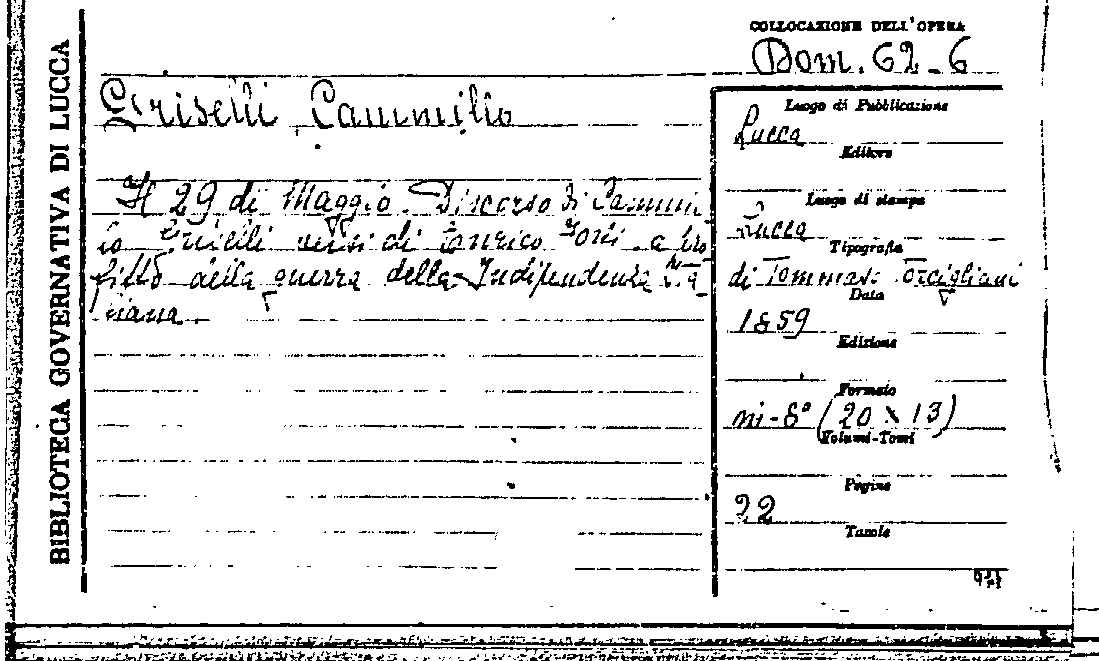 BIBLIOTECA GOVERNATIVA DI LUCCA
COLLOCAZIONE DELL'OPERA
Dom. 62-6
Griselli Cammillo
Il 29 di Maggio. Discorso di Cammil
lo Griselli versi di Enrico a pro
fitto della guerra della Indipendenza Ita
liana.
Luogo di Pubblicazione
Lucca
Editore
Luogo di stampa
Lucca
Tipografia
di Tommaso Torcigliani
Data
1859
Edizione
Formato
in-8° (20 x 13)
Volumi-Tomi
Pagine
22
Tavole